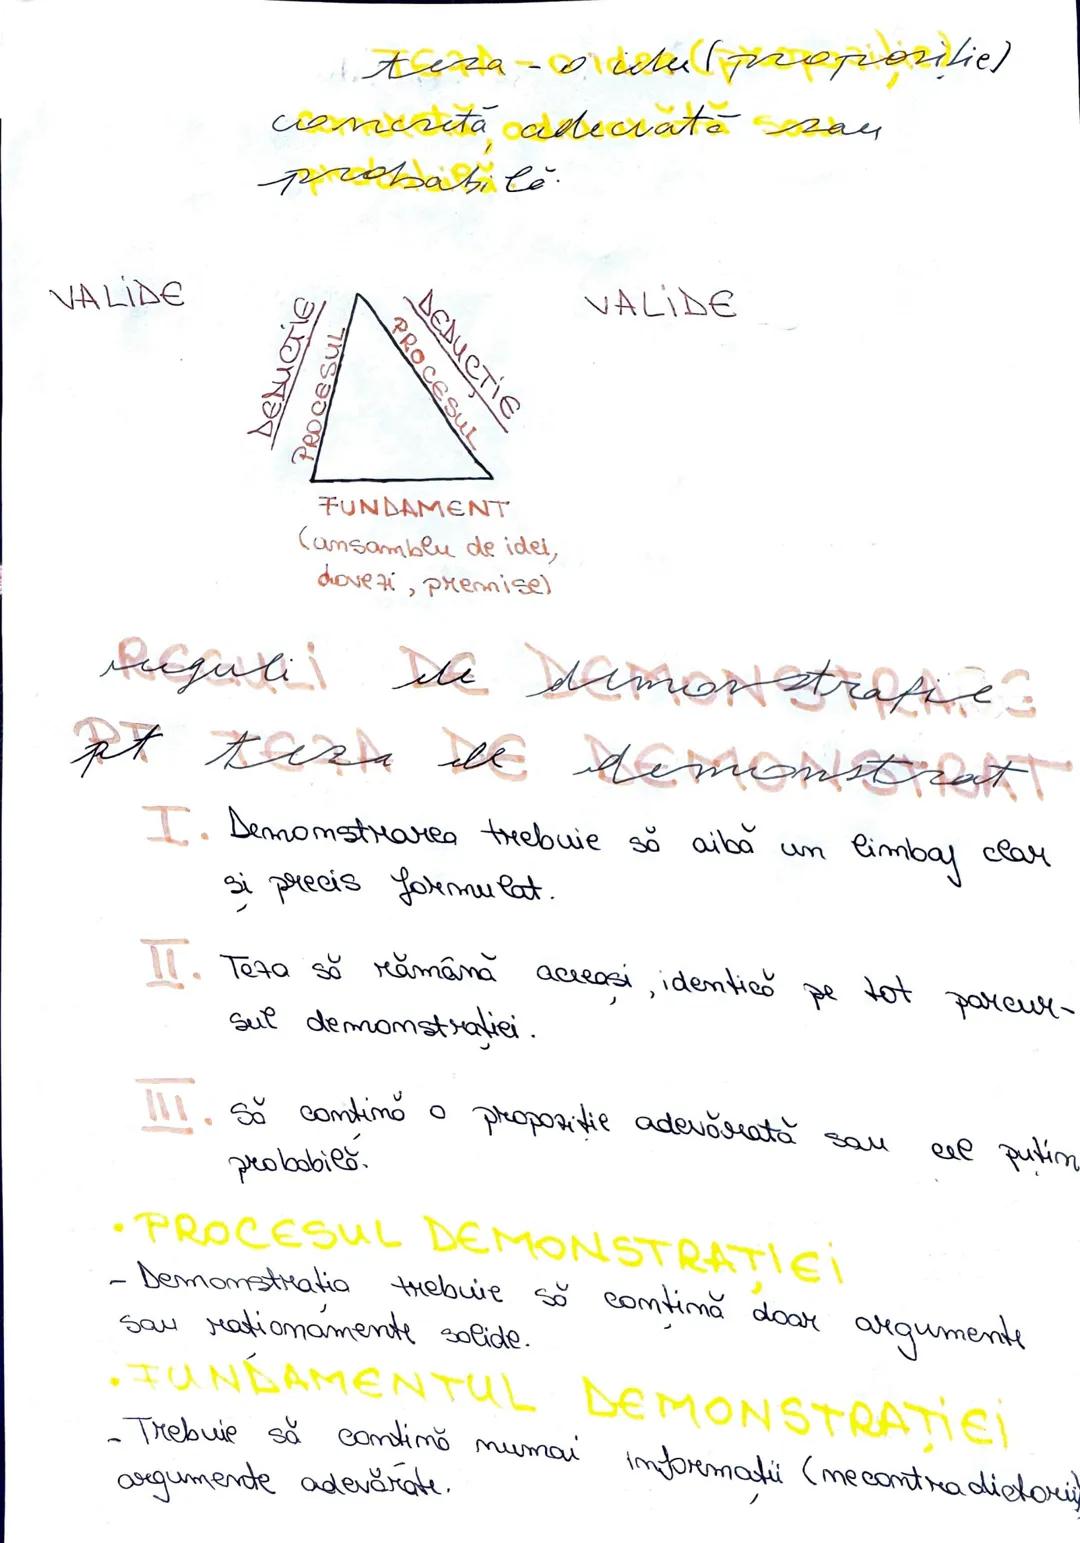 teza - o idee (propoziție)
concretă, adecvată sau
probabilă.
VALIDE
VALIDE
DEDUCȚIE
PROCESUL
DEDUCȚIE
PROCESUL
FUNDAMENT
(ansamblu de idei,
dovezi, premise)
REGULI DE DEMONSTRAȚIE
PT TEZA DE DEMONSTRAT
I. Demonstrarea trebuie să aibă un limbaj clar
și precis formulat.
II. Teza să rămână aceeași, identică pe tot parcur-
sul demonstrației.
III. Să conțină o propoziție adevărată sau cel puțin
probabilă.
• PROCESUL DEMONSTRAȚIEI
- Demonstrația trebuie să conțină doar argumente
sau raționamente solide.
• FUNDAMENTUL DEMONSTRAȚIEI
- Trebuie să conțină numai informații (necontradictorii)
argumente adevărate.